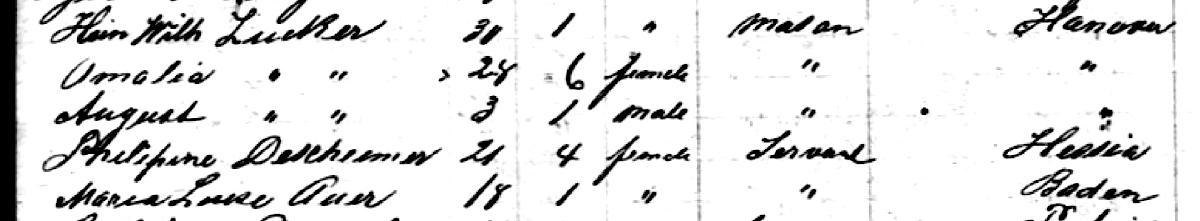 Hein Wilh Lucker 30 1 " Mason Hanover
Amalia " " 28 6 female " "
August " " 3 1 male " "
Philipine Descheimer 21 4 female Servant Hessia
Maria Luise Auer 18 1 " " Baden